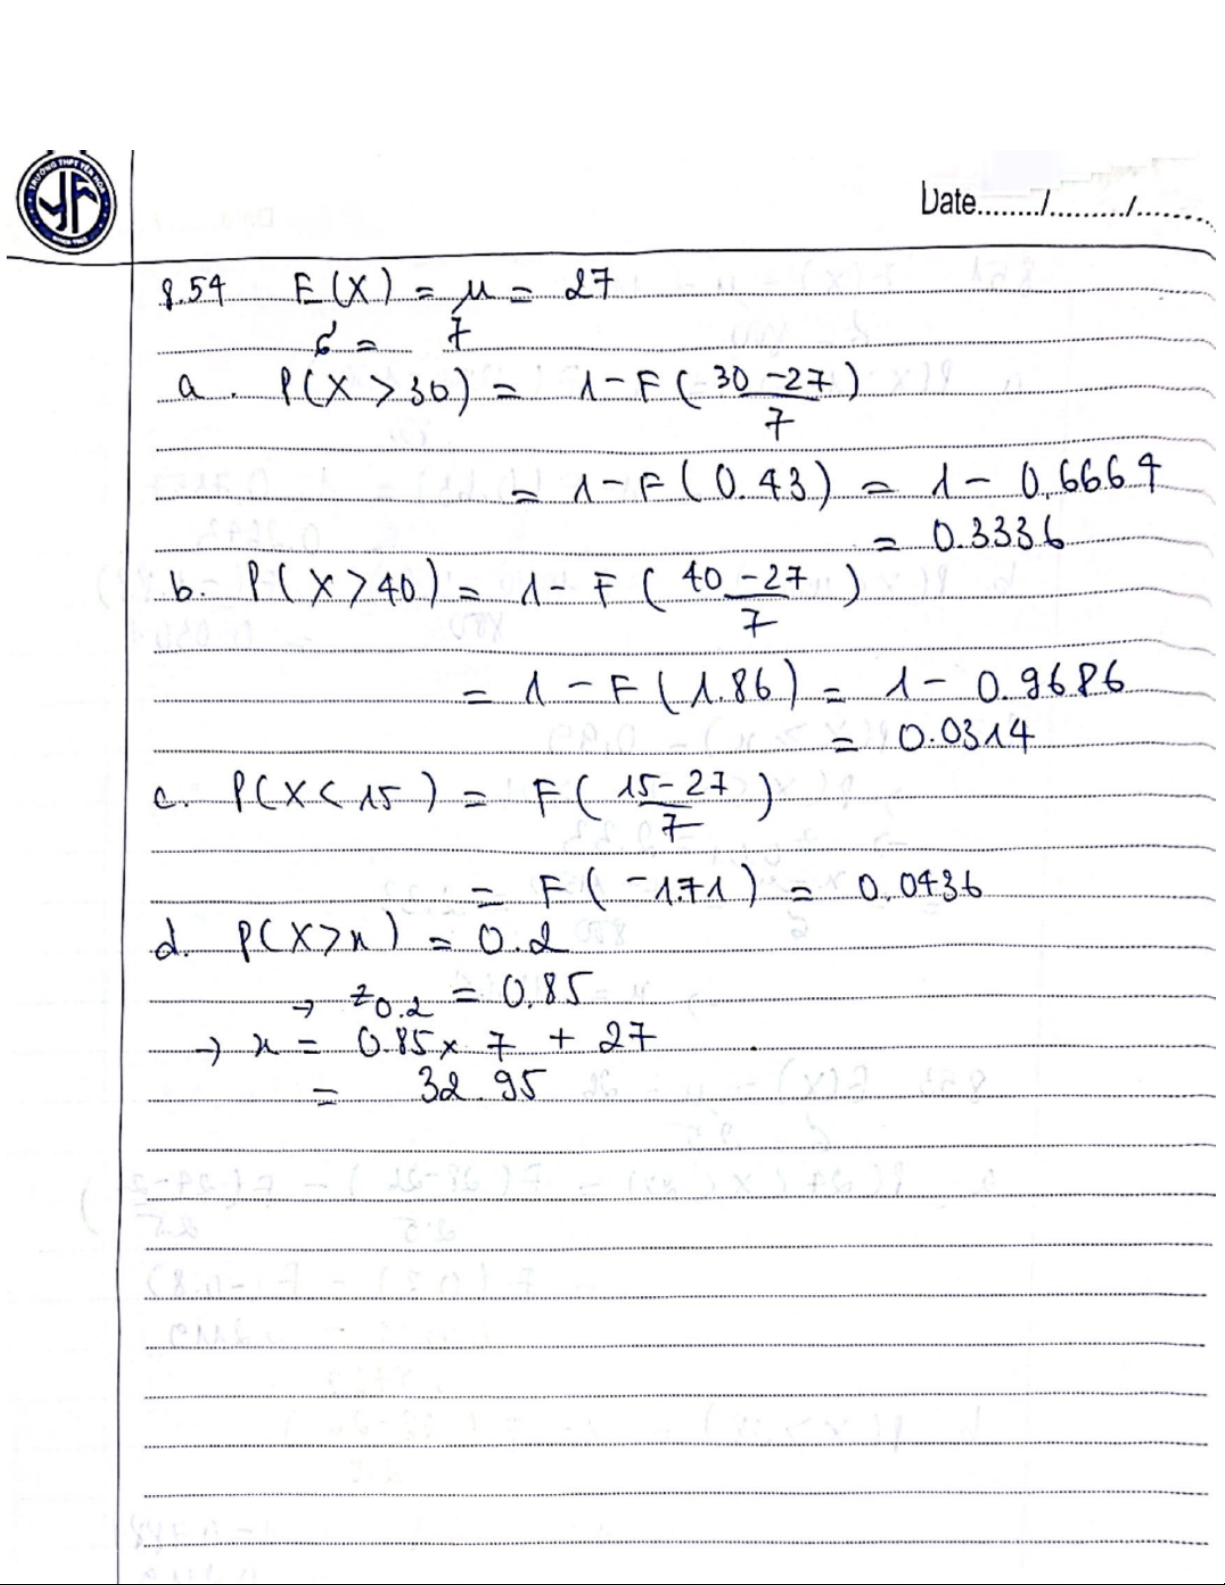 TRƯỜNG THPT YÊN HOÀ
Date......../........./........
8.54 E(X) = μ = 27
σ = 7
a. P(X > 30) = 1 - F( (30 - 27)/7 )
= 1 - F(0.43) = 1 - 0.6664
= 0.3336
b. P(X > 40) = 1 - F( (40 - 27)/7 )
= 1 - F(1.86) = 1 - 0.9686
= 0.0314
c. P(X < 15) = F( (15 - 27)/7 )
= F(-1.71) = 0.0436
d. P(X > x) = 0.2
→ z0.2 = 0.85
→ x = 0.85 × 7 + 27
= 32.95